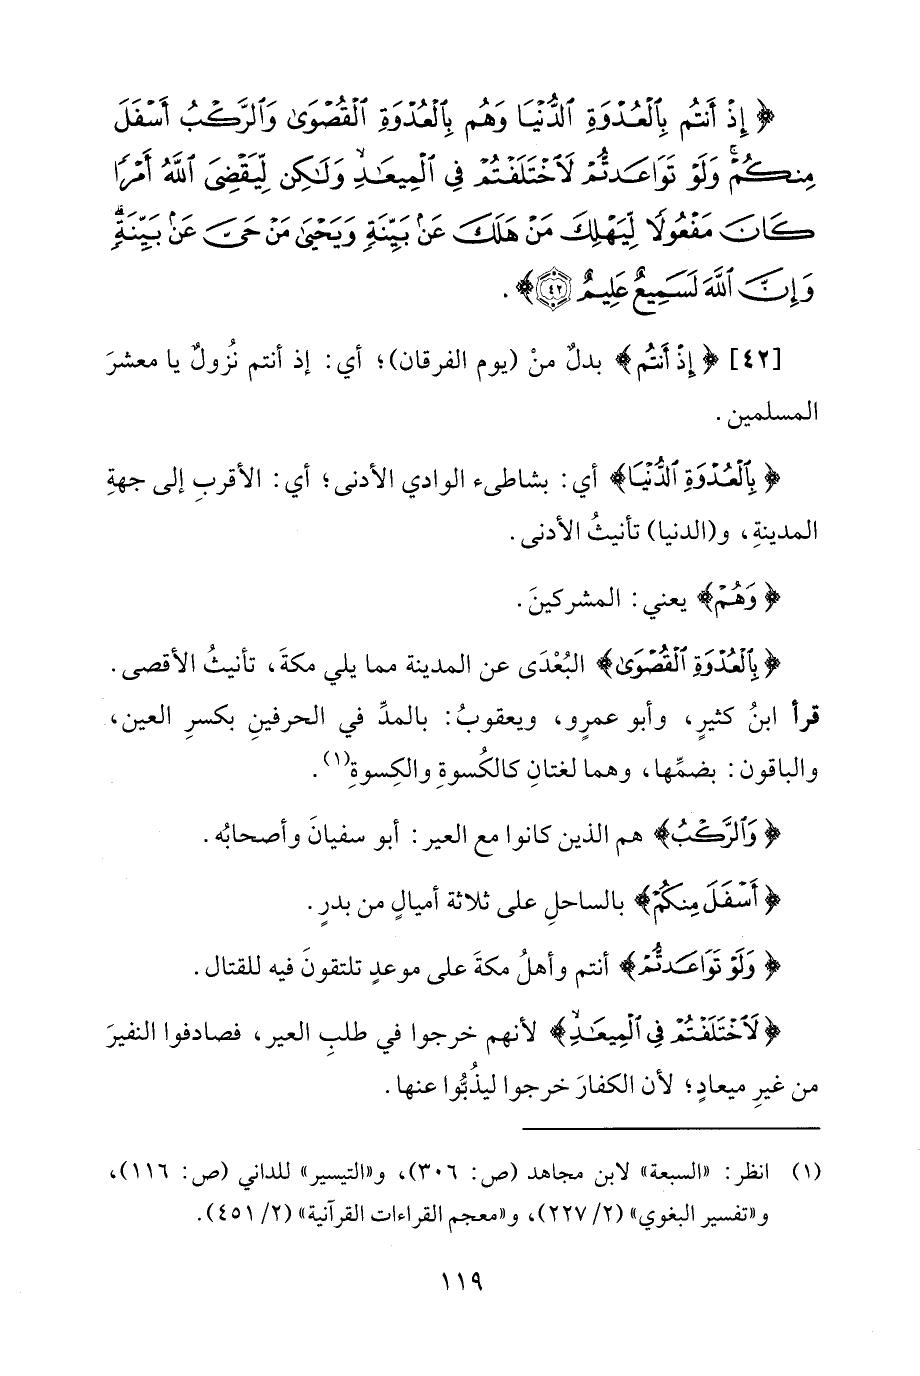 ﴿ إِذْ أَنتُم بِٱلْعُدْوَةِ ٱلدُّنْيَا وَهُم بِٱلْعُدْوَةِ ٱلْقُصْوَىٰ وَٱلرَّكْبُ أَسْفَلَ
مِنكُمْ ۚ وَلَوْ تَوَاعَدتُّمْ لَٱخْتَلَفْتُمْ فِى ٱلْمِيعَـٰدِ ۙ وَلَـٰكِن لِّيَقْضِىَ ٱللَّهُ أَمْرًا
كَانَ مَفْعُولًا لِّيَهْلِكَ مَنْ هَلَكَ عَنۢ بَيِّنَةٍ وَيَحْيَىٰ مَنْ حَىَّ عَنۢ بَيِّنَةٍ ۗ
وَإِنَّ ٱللَّهَ لَسَمِيعٌ عَلِيمٌ ٤٢ ﴾ .
[٤٢] ﴿ إِذْ أَنتُم ﴾ بدلٌ منْ (يوم الفرقان)؛ أي: إذ أنتم نُزولٌ يا معشرَ
المسلمين .
﴿ بِٱلْعُدْوَةِ ٱلدُّنْيَا ﴾ أي: بشاطىء الوادي الأدنى؛ أي: الأقربِ إلى جهةِ
المدينةِ، و(الدنيا) تأنيثُ الأدنى.
﴿ وَهُم ﴾ يعني: المشركينَ .
﴿ بِٱلْعُدْوَةِ ٱلْقُصْوَىٰ ﴾ البُعْدَى عن المدينة مما يلي مكةَ، تأنيثُ الأقصى .
قرأ ابنُ كثيرٍ، وأبو عمرٍو، ويعقوبُ: بالمدِّ في الحرفينِ بكسرِ العين،
والباقون: بضمِّها، وهما لغتانِ كالكُسوةِ والكِسوةِ(١).
﴿ وَٱلرَّكْبُ ﴾ هم الذين كانوا مع العير: أبو سفيانَ وأصحابُه .
﴿ أَسْفَلَ مِنكُمْ ﴾ بالساحلِ على ثلاثة أميالٍ من بدرٍ .
﴿ وَلَوْ تَوَاعَدتُّمْ ﴾ أنتم وأهلُ مكةَ على موعدٍ تلتقونَ فيه للقتال .
﴿ لَٱخْتَلَفْتُمْ فِى ٱلْمِيعَـٰدِ ۙ ﴾ لأنهم خرجوا في طلبِ العير، فصادفوا النفيرَ
من غيرِ ميعادٍ؛ لأن الكفارَ خرجوا ليذُبُّوا عنها .
(١) انظر: «السبعة» لابن مجاهد (ص: ٣٠٦)، و«التيسير» للداني (ص: ١١٦)،
و«تفسير البغوي» (٢/ ٢٢٧)، و«معجم القراءات القرآنية» (٢/ ٤٥١).
١١٩